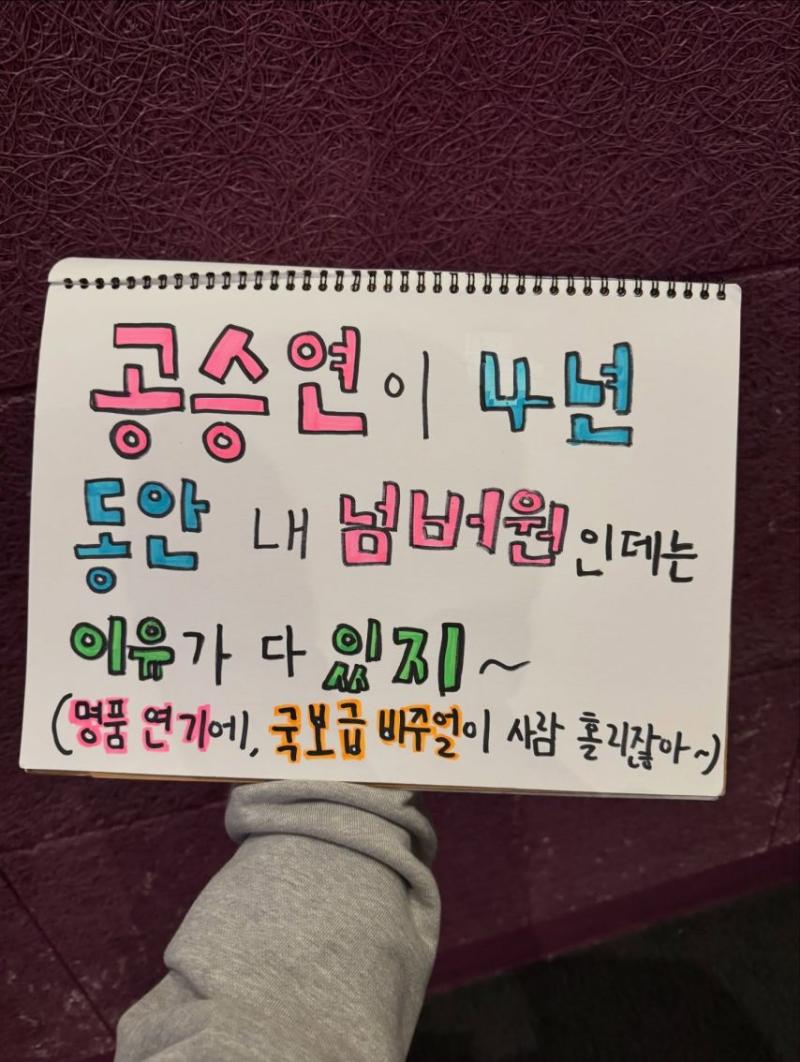 공승연이 4년
동안 내 넘버원인데는
이유가 다 있지~
(명품 연기에, 국보급 비주얼이 사람 홀리잖아~)